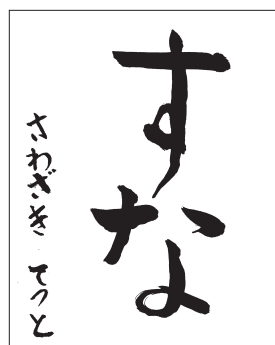 すな
さわざき てつと